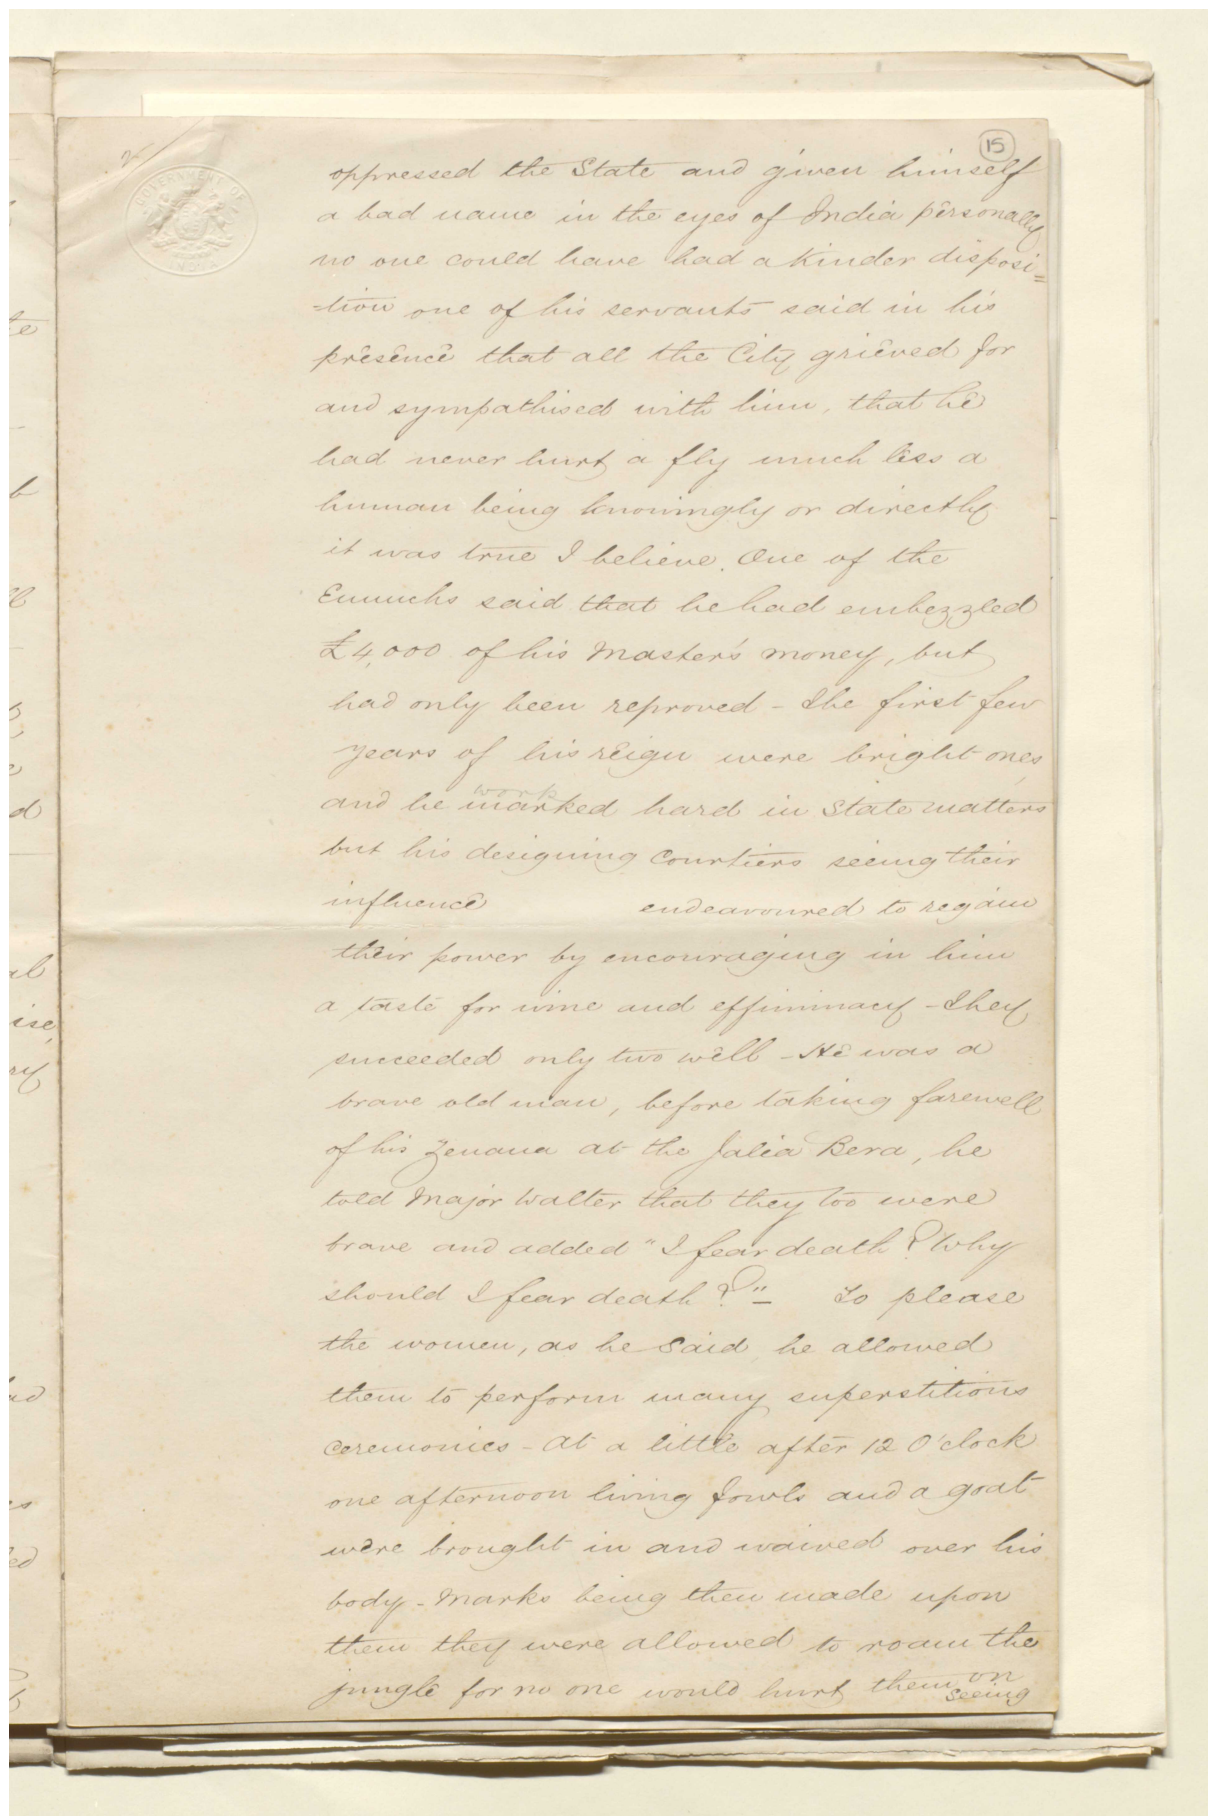 15
2
GOVERNMENT OF
INDIA
oppressed the State and given himself
a bad name in the eyes of India personally
no one could have had a kinder disposi=
-tion one of his servants said in his
presence that all the City grieved for
and sympathised with him, that he
had never hurt a fly much less a
human being knowingly or directly
it was true I believe. One of the
Eunuchs said that he had embezzled
£4,000 of his Master's money, but
had only been reproved - The first few
years of his reign were bright ones,
work
and he marked hard in State matters
but his designing Courtiers seeing their
influence endeavoured to regain
their power by encouraging in him
a taste for wine and effiminacy - They
succeeded only two well - He was a
brave old man, before taking farewell
of his Zenana at the Jalia Bera, he
told Major Walter that they too were
brave and added "I fear death? Why
should I fear death?" - To please
the women, as he said he allowed
them to perform many superstitions
ceremonies - at a little after 12 O'clock
one afternoon living fowls and a goat
were brought in and waived over his
body - Marks being then made upon
them they were allowed to roam the
jungle for no one would hurt them on
seeing